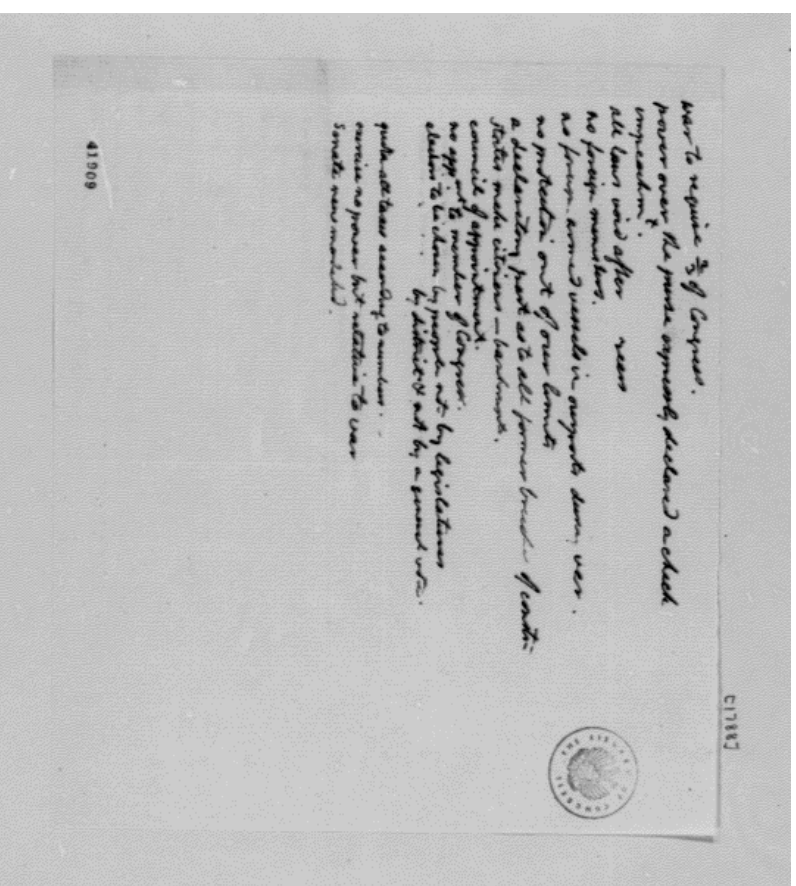 war to require ⅔ of Congress.
power over the purse expressly declared a check
impeachmt.
all laws void after     years
no foreign ministers.
no foreign armed vessels in our ports during war.
no protection out of our limits
a declaratory part as to all former breaches of constn
states make citizens –
council of appointment.
no appmt to member of Congress.
electors to be chosen by people not by legislatures
by districts & not by a general vote.
quota all taxes according to numbers.
exercise no power but relative to war
Senate new modeled.
41909
C17887
THE LIBRARY OF CONGRESS